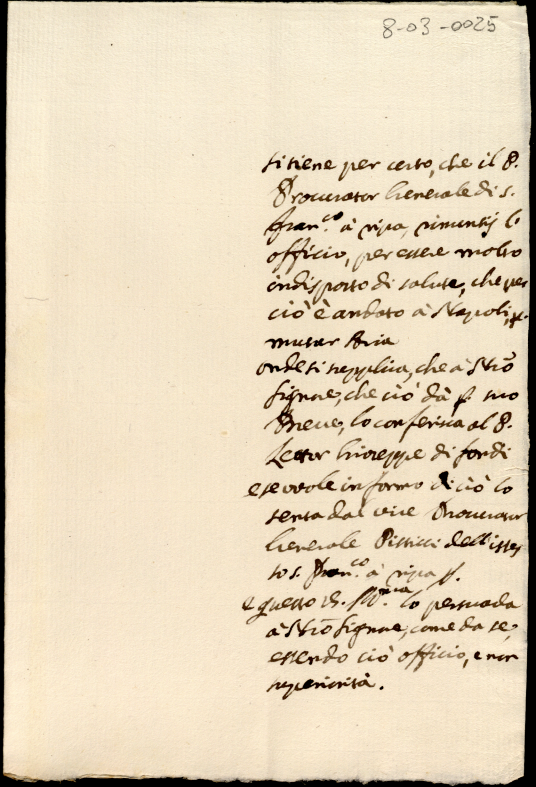 8-03-0025
si tiene per certo, che il P.
Procurator Generale di S.
Fran.co à ripa, rinuntij lo
officio, per essere molto
indisposto di salute, che per
ciò è andato à Napoli, p.
mutar Aria
onde si supplica, che à Nrõ
Signore, che ciò dà p. suo
Breve, lo conferisca al P.
Lettor Gioseppe di fondi
e se vuole informo di ciò lo
senta dal vice Procurator
Generale Pisticci dell'istes
so S. Fran.co à ripa p.
e questo V. Ill.ma lo persuada
à Nrõ Signore, come da se,
essendo ciò officio, e non
superiorità.